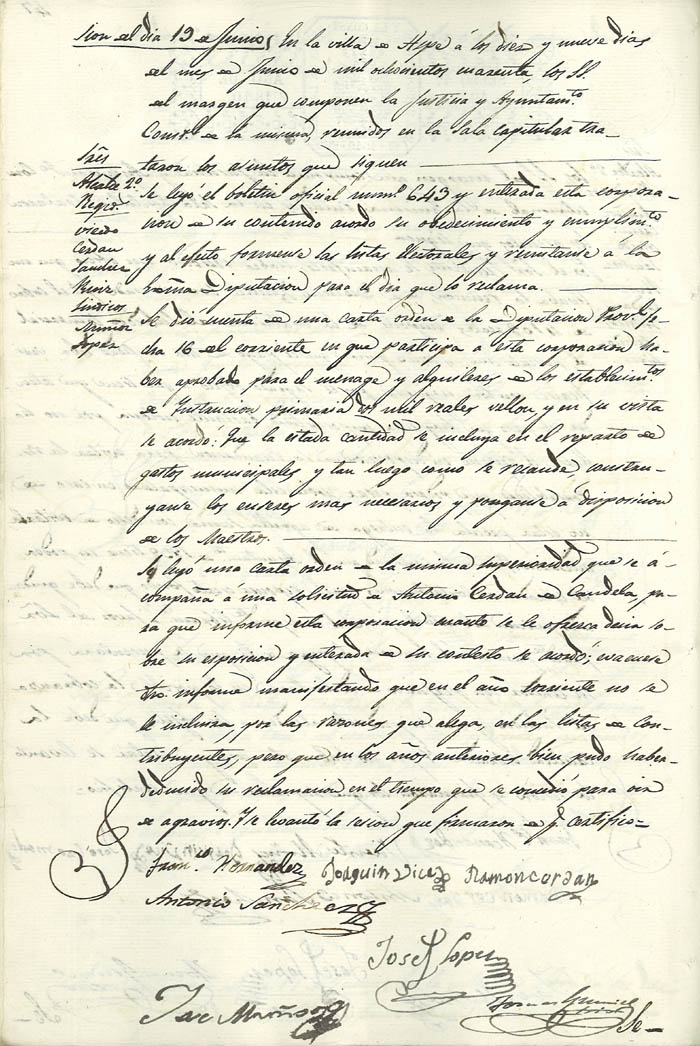 sion del dia 19 de Junio, En la villa de Aspe á los diez y nueve dias
del mes de Junio de mil ochocientos cuarenta, los SS.
del margen que componen la Justicia y Ayuntam.to
Const.l de la misma, reunidos en la Sala capitular tra-
taron los asuntos que siguen
Sres
Alcalde 2.º
Regid.s
Cerdan
Sanchez
Ruiz
Sindicos
Lopez
Se leyó el boletin oficial num.º 643 y enterada esta corpora-
cion de su contenido acordo su obedecimiento y cumplim.to
y al efecto formense las listas electorales y remitanse á la
Diputacion para el dia que lo reclama.
Se dio cuenta de una carta orden de la Diputacion Prov.l fe-
cha 16 del corriente en que participa á esta corporacion ha-
ber aprobado para el menage y alquileres de los establecim.tos
de Instruccion primaria dos mil reales vellon y en su vista
se acordo: Que la citada cantidad se incluya en el reparto de
gastos municipales y tan luego como se recaude, constru-
yanse los enseres mas necesarios y ponganse á disposicion
de los Maestros.
Se leyó una carta orden de la misma superioridad que se á-
compaña á una solicitud de Antonio Cerdan de Candela, pa-
ra que informe esta corporacion cuanto se le ofrezca decir so-
bre su exposicion y enterada de su contesto se acordó; evacuese
dho. informe manifestando que en el año corriente no se
le incluira, por las razones que alega, en las listas de con-
tribuyentes, pero que en los años anteriores, bien pudo haber
deducido su reclamacion en el tiempo que se concedió para oir
de agravios. Y se levantó la sesion que firmaron de q. certifico-
Fran.co Hernandez Joaquin Vicedo Ramon cerdan
Antonio Sanchez
José Lopez
Jose
Se-